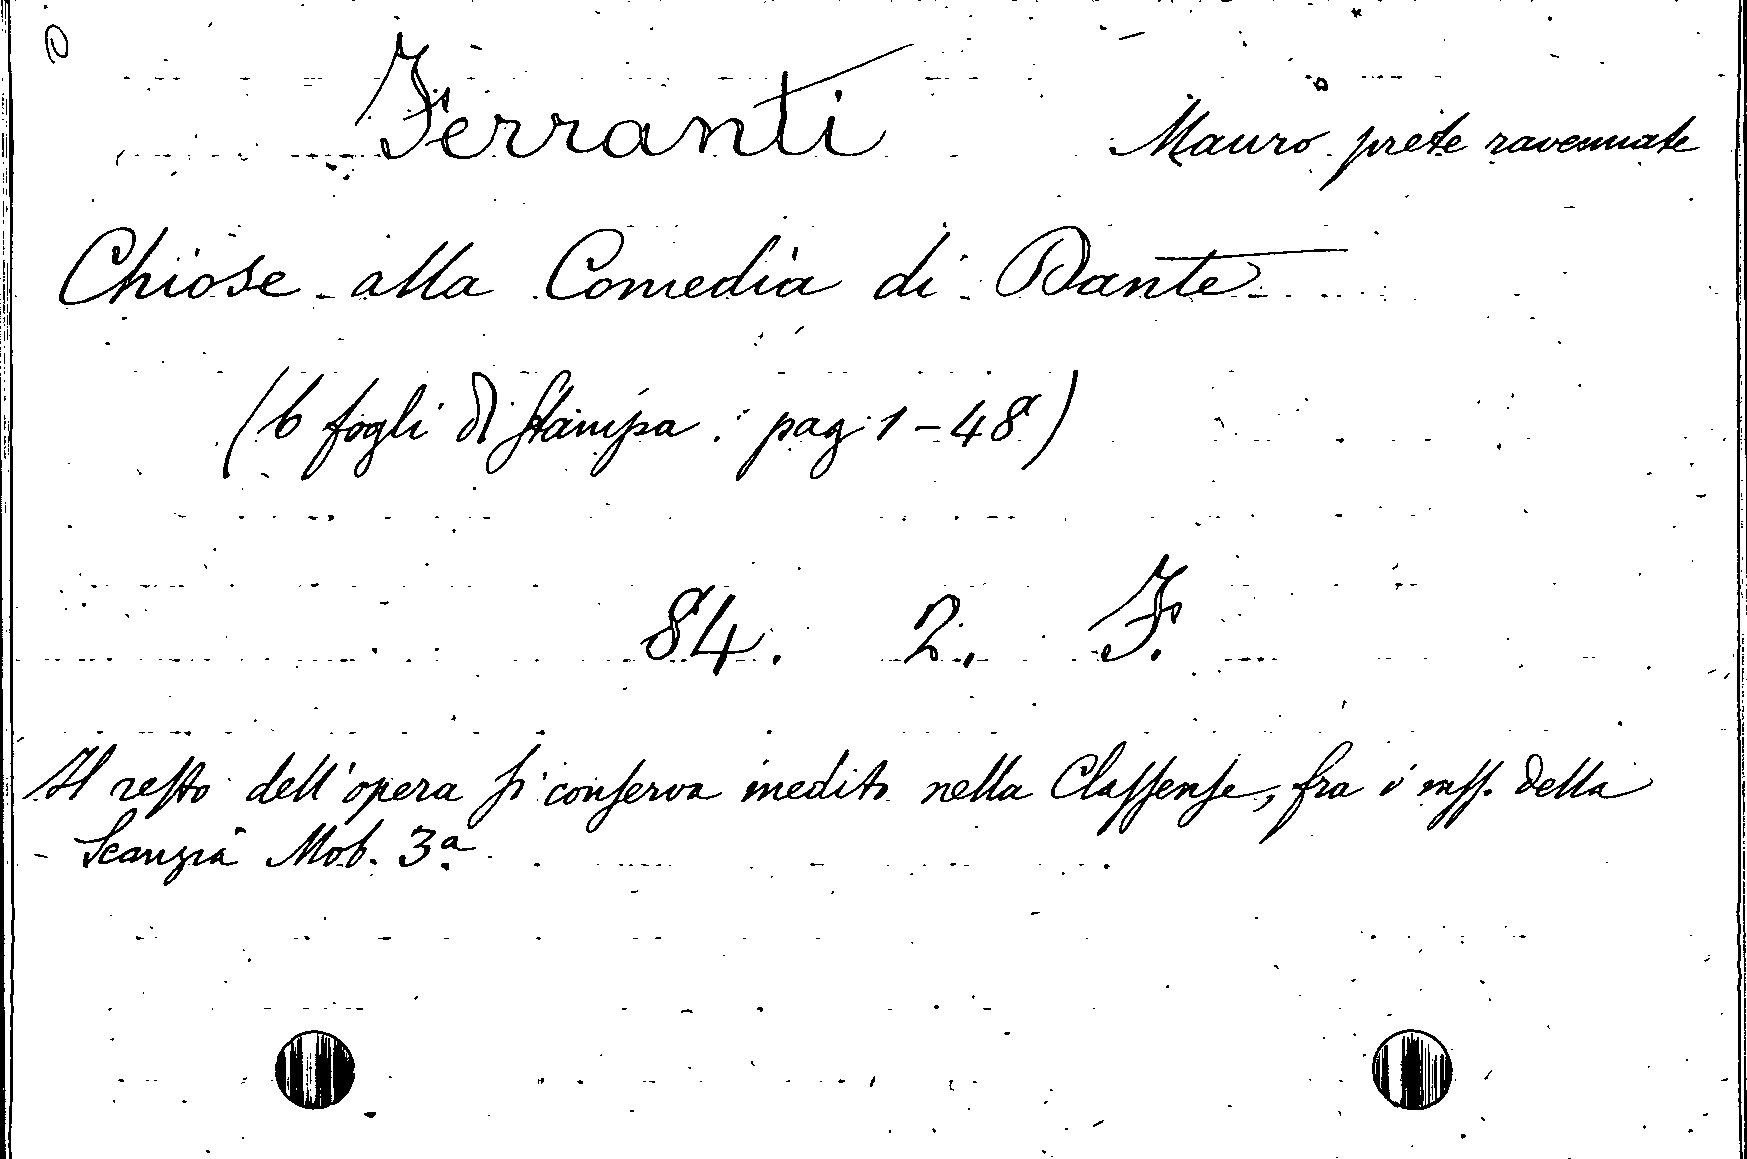 Ferranti Mauro prete ravennate
Chiose alla Comedia di Dante
(6 fogli di stampa: pag. 1-48)
84. 2. F.
Il resto dell'opera si conserva inedito nella Classense, fra i mss. della
Scanzia Mob. 3ª